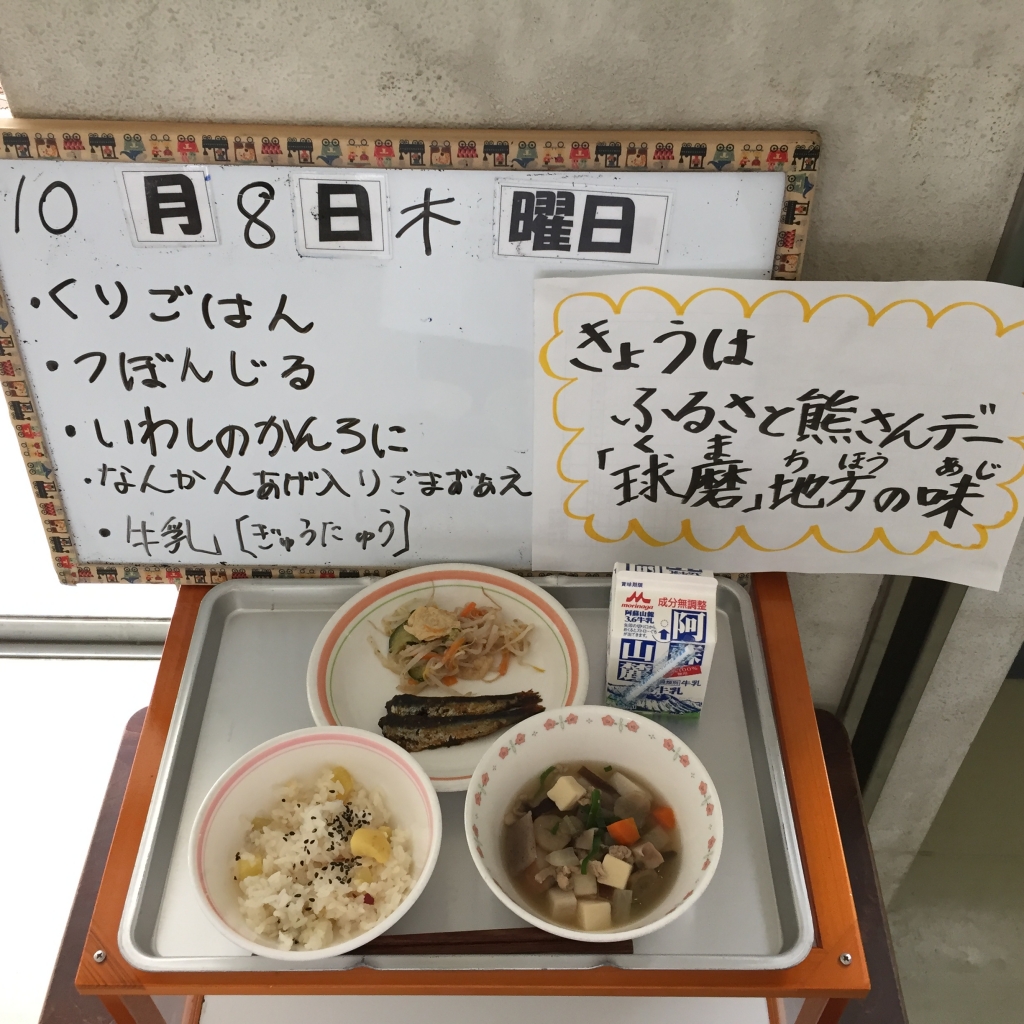 10月8日木曜日
・くりごはん
・つぼんじる
・いわしのかんろに
・なんかんあげ入りごまずあえ
・牛乳〔ぎゅうにゅう〕
きょうは
ふるさと熊さんデー
くま ちほう あじ
「球磨」地方の味
賞味期限
morinaga
成分無調整
阿蘇山麓
3.6牛乳
阿蘇
山麓
牛乳